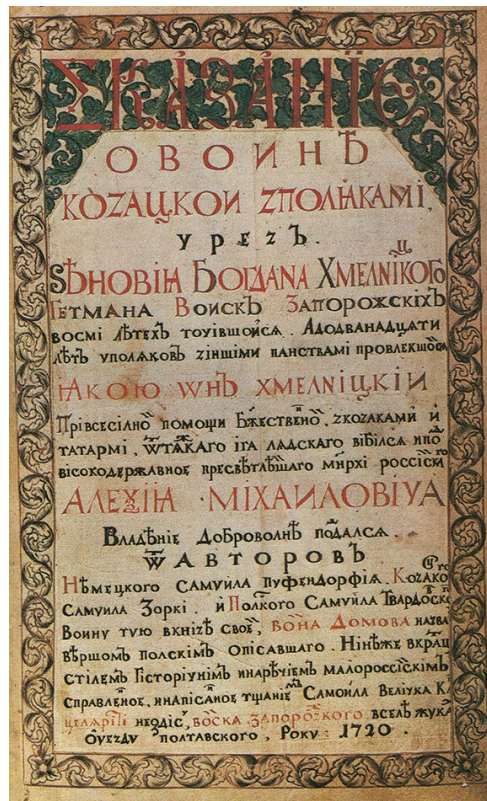 СКАЗАНІЕ
О ВОИНѢ
КОZАЦКОИ ZПОЛЯКАМІ,
ЧРЕZЪ.
ЅѢНОВІЯ БОГДАНА ХМЕЛНИЦКОГО
ГЕТМАНА ВОИСКЪ ЗАПОРОЖСКІХЪ
ВОСМІ ЛѢТЕХЪ ТОЧІВШОЙСЯ. АДОДВАНАДЦЯТИ
ЛѢТЪ УПОЛЯКОВЪ ZІНШІМИ ПАНСТВАМІ ПРОВЛЕКШОЙСЯ
ЯКОЮ ѠНЪ ХМЕЛНІЦКІИ
ПРІВСЕСІЛНОЙ ПОМОЩИ БЖЕСТВЕНОЙ, ZКОZАКАМИ И
ТАТАРМІ, ѾТЯЖКАГО ІГА ЛЯДСКАГО ВІБІЛСЯ ИПОД
ВІСОКОДЕРЖАВНОЕ ПРЕСВѢТЛѢШАГО МНРХИ РОССІЙСКАГО
АЛЕѮІЯ МІХАИЛОВІЧА
ВЛАДѢНІЕ ДОБРОВОЛНѢ ПОДАЛСЯ.
Ѿ АВТОРОВЪ
НѢМЕЦКОГО САМУИЛА ПУФЕНДОРФІЯ, КОZАКО
САМУИЛА ЗОРКІ. И ПОЛСКОГО САМУИЛА ТВАРДОВСКО
ВОИНУ ТУЮ ВКНІZѢ СВОЕЙ, ВОЙНА ДОМОВА НАZВА
ВѢРШОМЪ ПОЛСКІМЪ ОПІСАВШАГО. НІНѢЖЕ ВКРАЦ
СТІЛЕМЪ ГІСТОРІЧНІМЪ ИНАРѢЧІЕМЪ МАЛОРОССІЙСКІМЪ
СПРАВЛЕНОЕ, ИНАПІСАНОЕ ТЩАНІЕМЪ САМОИЛА ВЕЛІЧКА КА
ЦЕЛЯРІІ НЕГДІСЬ, ВОЙСКА ЗАПОРОЖКОГО ВСЕЛѢ ЖУКА
ОУЕZДУ ПОЛТАВСКОГО, РОКУ: 1720.